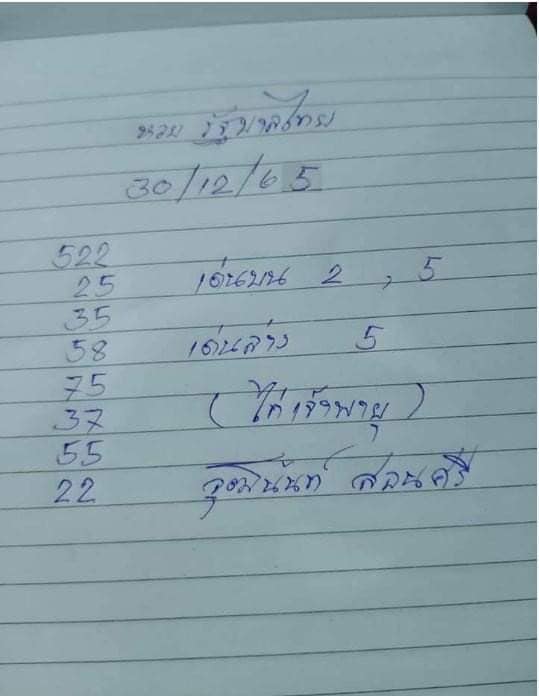 หวย รัฐบาลไทย
30/12/65
522
25 เด่นบน 2 , 5
35
58 เด่นล่าง 5
75
37 (ไก่เจ้าพายุ)
55
22 สอนศรี